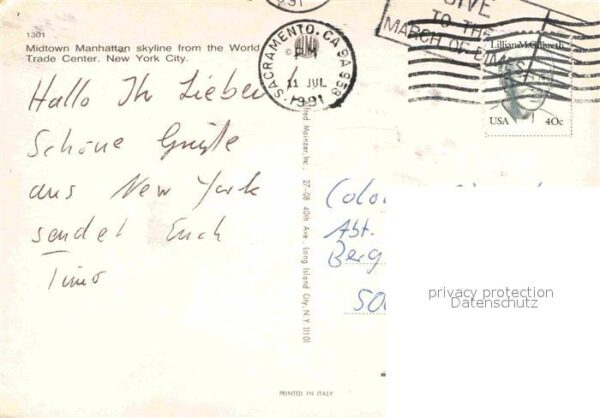 1301
Midtown Manhattan skyline from the World
Trade Center. New York City.
Hallo Ihr Lieben
Schöne Grüße
aus New York
sendet Euch
Timo
1991
SACRAMENTO, CA 958
PM
11 JUL
1991
GIVE
TO THE
MARCH OF DIMES
Lillian M. Gilbreth
USA 40c
Alfred Mainzer, Inc., 27-08 40th Ave., Long Island City, N.Y. 11101
Abt.
Berg
500
privacy protection
Datenschutz
PRINTED IN ITALY